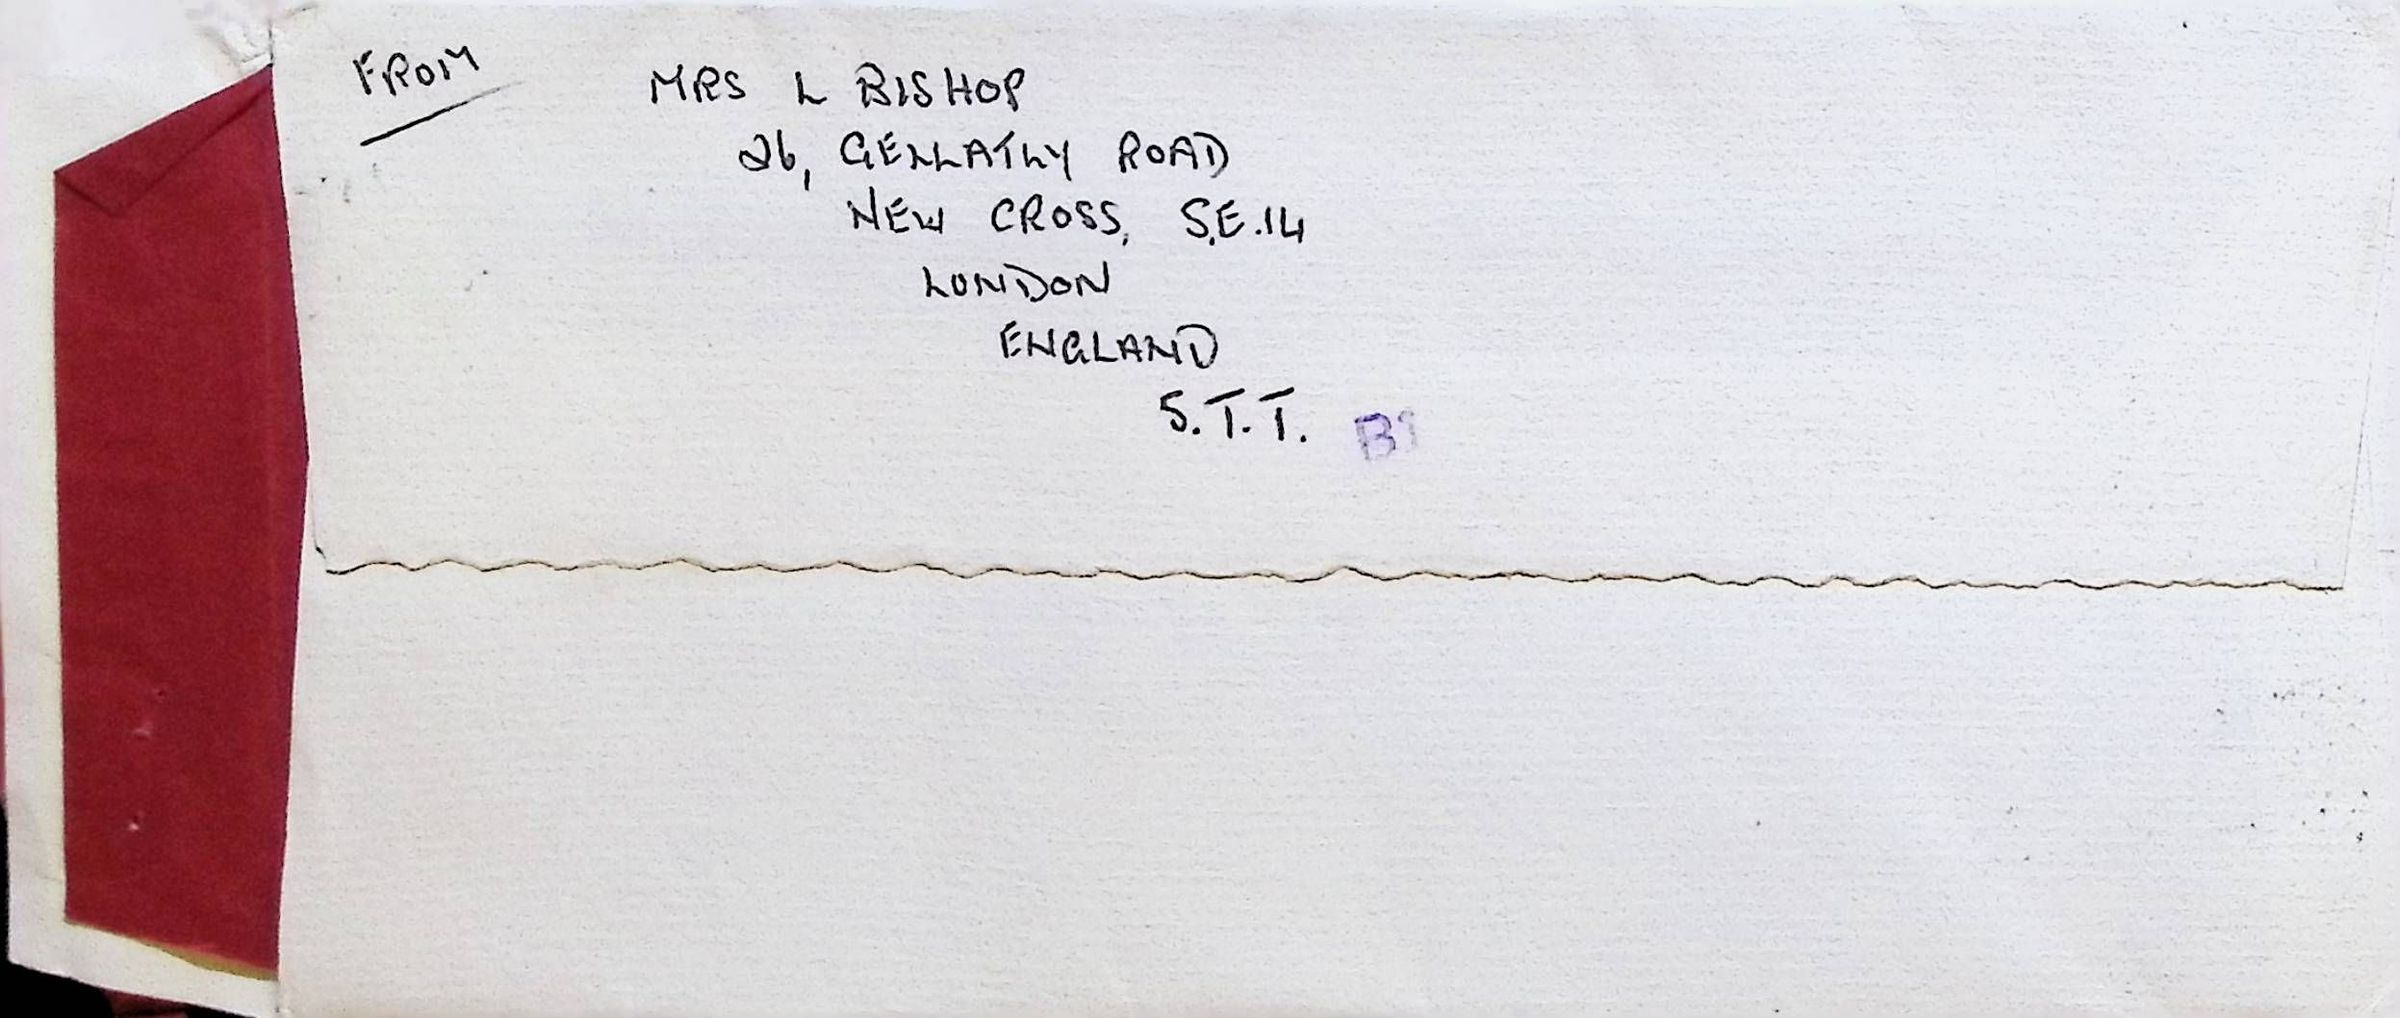 FROM
MRS L BISHOP
26, GELLATLY ROAD
NEW CROSS, S.E.14
LONDON
ENGLAND
S.T.T.